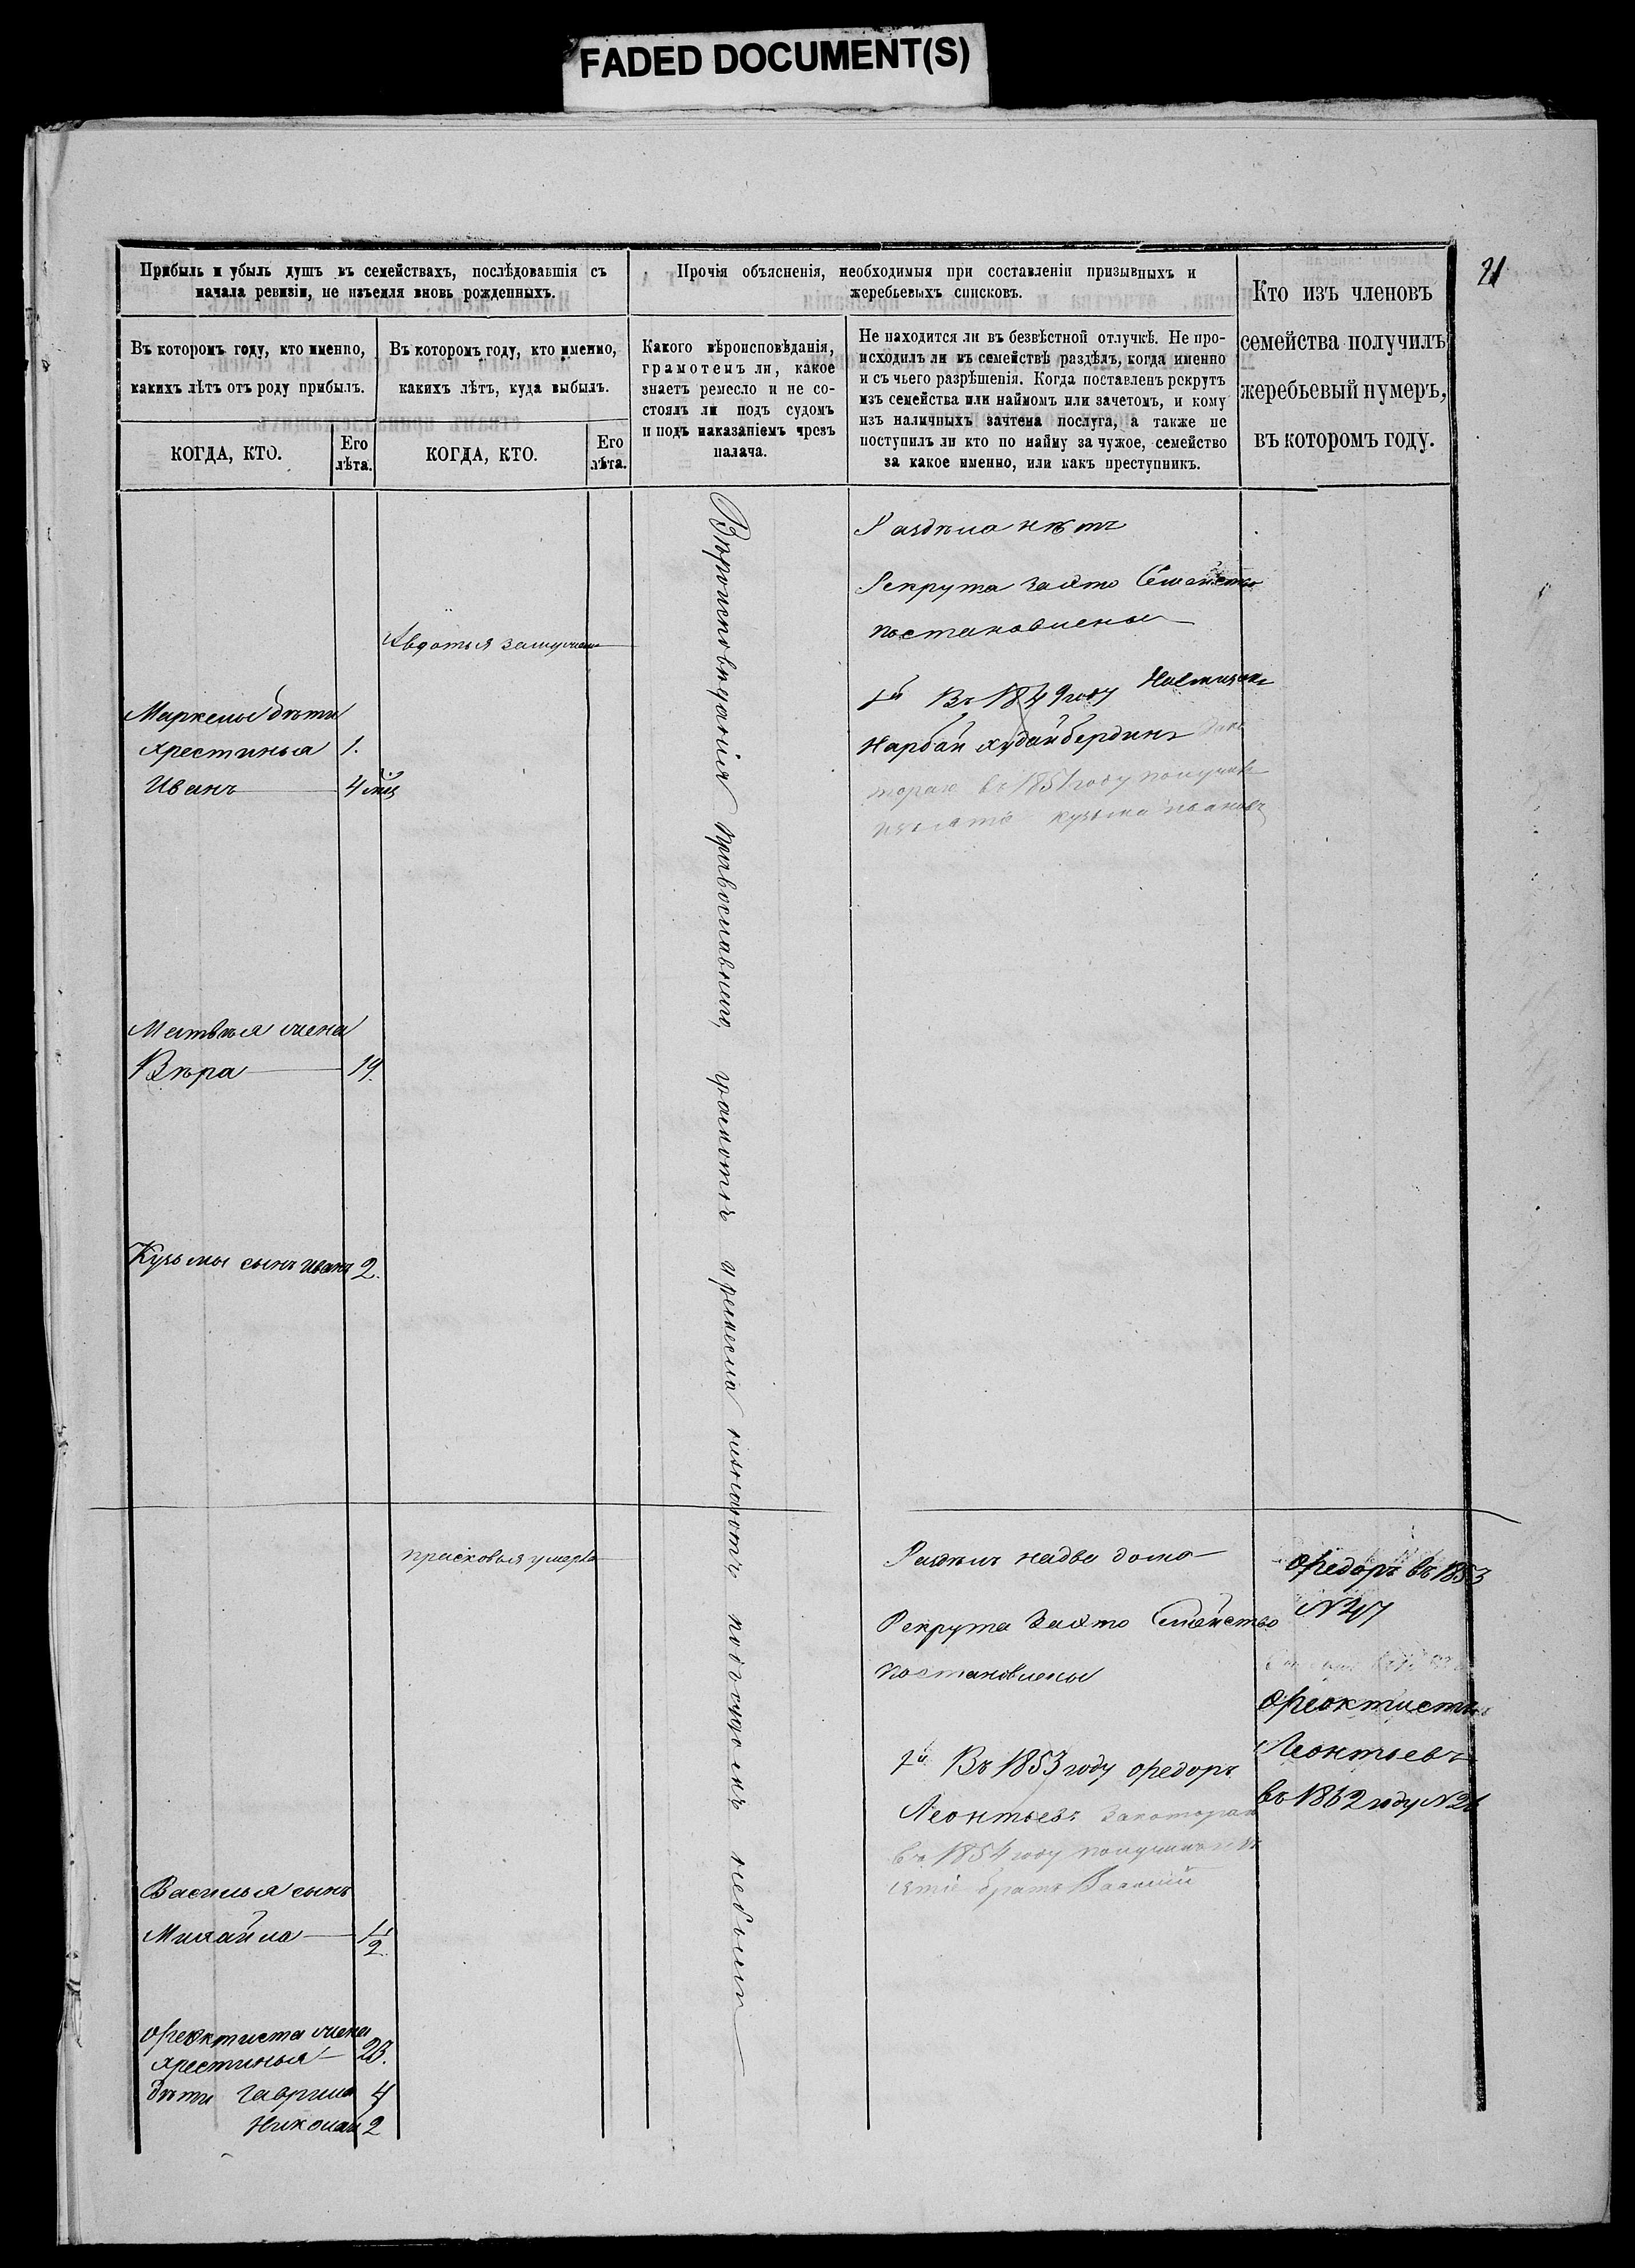 FADED DOCUMENT(S)
21
Прибыль и убыль душъ въ семействахъ, послѣдовавшія съ
начала ревизіи, не изъемля вновь рожденныхъ.
Въ которомъ году, кто именно,
какихъ лѣтъ отъ роду прибылъ.
КОГДА, КТО.
Его
лѣта.
Въ которомъ году, кто именно,
какихъ лѣтъ, куда выбылъ.
КОГДА, КТО.
Его
лѣта.
Прочія объясненія, необходимыя при составленіи призывныхъ и
жеребьевыхъ списковъ.
Какого вѣроисповѣданія,
грамотенъ ли, какое
знаетъ ремесло и не со-
стоялъ ли подъ судомъ
и подъ наказаніемъ чрезъ
палача.
Не находится ли въ безвѣстной отлучкѣ. Не про-
исходилъ ли въ семействѣ раздѣлъ, когда именно
и съ чьего разрѣшенія. Когда поставленъ рекрутъ
изъ семейства или наймомъ или зачетомъ, и кому
изъ наличныхъ зачтена послуга, а также не
поступилъ ли кто по найму за чужое, семейство
за какое именно, или какъ преступникъ.
Кто изъ членовъ
семейства получилъ
жеребьевый нумеръ,
въ которомъ году.
Авдотья
Маркелы дѣти
хрестинья 1.
Иванъ 4
Матвѣя жена
Вѣра 19.
Кузьмы сынъ Иванъ 2.
Вѣроисповѣданія православнаго, грамотѣ и ремесла незнаютъ подсудомъ небыли
Раздѣла нѣтъ
Рекрута заэто Семейство
постановлены
1й Въ 1849 году
Нарбай худайбердинъ
въ 1851 году получилъ
кузьма Ивановъ
прасковья умерла
Раздѣлъ надва дома
Рекрута Заэто Семейство
постановлены
1й Въ 1853 году Ѳедоръ
Леонтьевъ закотораго
въ 1854 году получилъ
братъ Василій
Ѳедоръ въ 1853
N 47
Ѳеоктистъ
Леонтьевъ
въ 1862 году N 26
Василья сынъ
Михайла 1/2
Ѳеоктиста жена
хрестинья 23.
дѣти Гаврила 4
Николай 2